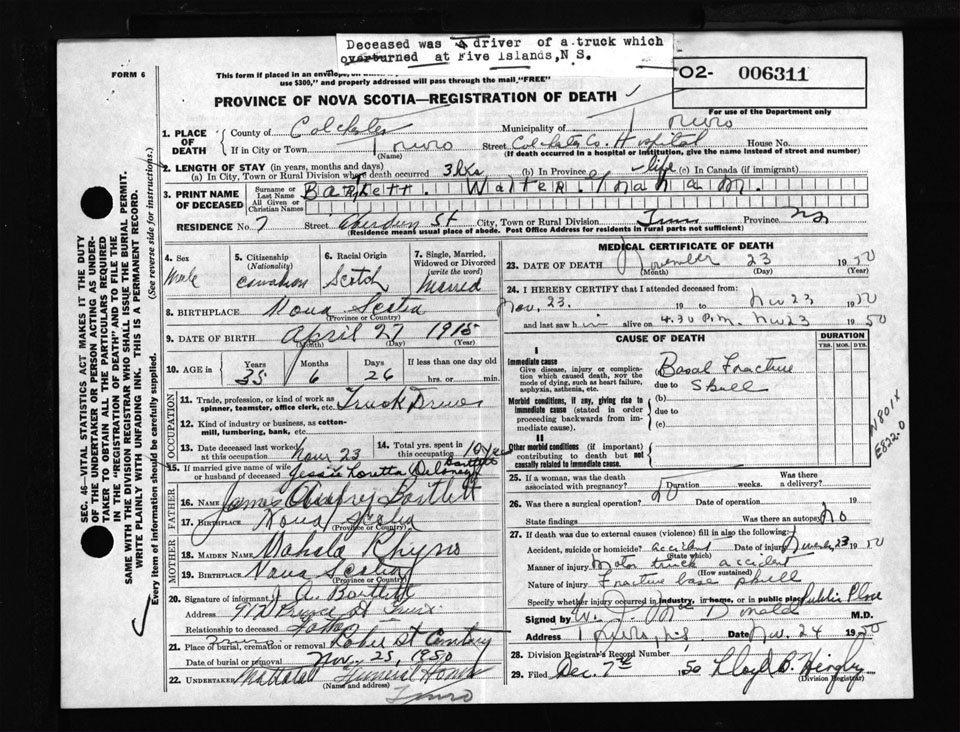 Deceased was a driver of a truck which
overturned at Five Islands, N.S.
FORM 6
This form if placed in an envelope,
use $300," and properly addressed will pass through the mail, "FREE"
O2- 006311
For use of the Department only
PROVINCE OF NOVA SCOTIA—REGISTRATION OF DEATH
1. PLACE OF DEATH
County of Colchester Municipality of Truro
If in City or Town Truro (Name) Street Colchester Co. Hospital House No.
(If death occurred in a hospital or institution, give the name instead of street and number)
2. LENGTH OF STAY (in years, months and days)
(a) In City, Town or Rural Division where death occurred 3 (b) In Province life (c) In Canada (if immigrant)
3. PRINT NAME OF DECEASED
Surname or Last Name Bartlett. All Given or Christian Names Walter.
RESIDENCE No. 7 Street Aberdeen St City, Town or Rural Division Truro Province NS
(Residence means usual place of abode. Post Office Address for residents in rural parts not sufficient)
4. Sex Male
5. Citizenship (Nationality) Canadian
6. Racial Origin Scotch
7. Single, Married, Widowed or Divorced (write the word) Married
8. BIRTHPLACE Nova Scotia
(Province or Country)
9. DATE OF BIRTH April 27 1915
(Month) (Day) (Year)
10. AGE in Years 35 Months 6 Days 26 If less than one day old
hrs. or min.
OCCUPATION
11. Trade, profession, or kind of work as spinner, teamster, office clerk, etc. Truck Driver
12. Kind of industry or business, as cotton-mill, lumbering, bank, etc.
13. Date deceased last worked at this occupation Nov 23
14. Total yrs. spent in this occupation 10 years
15. If married give name of wife or husband of deceased Jessie Loretta Bartlett
FATHER
16. NAME James Bartlett
17. BIRTHPLACE Nova Scotia
(Province or Country)
MOTHER
18. MAIDEN NAME Mahala Rhyno
19. BIRTHPLACE Nova Scotia
(Province or Country)
20. Signature of informant J. A. Bartlett
Address
Relationship to deceased Father
21. Place of burial, cremation or removal Robie St Cemetery
Date of burial or removal Nov. 25, 1950
22. UNDERTAKER Mattatall Funeral Home
(Name and address)
Truro
MEDICAL CERTIFICATE OF DEATH
23. DATE OF DEATH November 23 1950
(Month) (Day) (Year)
24. I HEREBY CERTIFY that I attended deceased from:
Nov. 23. 19 to Nov 23 1950
and last saw him alive on 4.30 P.M. Nov 23 1950
CAUSE OF DEATH
DURATION
YRS. MOS. DYS.
I
Immediate cause
Give disease, injury or complication which caused death, not the mode of dying, such as heart failure, asphyxia, asthenia, etc.
Basal Fracture
due to Skull
Morbid conditions, if any, giving rise to immediate cause (stated in order proceeding backwards from immediate cause).
(b)
due to
(c)
II
Other morbid conditions (if important) contributing to death but not causally related to immediate cause.
N801X
E822-0
25. If a woman, was the death associated with pregnancy? Duration weeks. Was there a delivery?
26. Was there a surgical operation? No Date of operation 19
State findings Was there an autopsy? No
27. If death was due to external causes (violence) fill in also the following:
Accident, suicide or homicide? accident Date of injury November 23 1950
(State which)
Manner of injury Motor truck accident
(How sustained)
Nature of injury Fracture base skull
Specify whether injury occurred in industry, in home, or in public place Public Place
Signed by MacDonald M.D.
Address Truro, N.S. Date Nov. 24 1950
28. Division Registrar's Record Number
29. Filed Dec. 7th 1950 Lloyd
(Division Registrar)
SEC. 46—VITAL STATISTICS ACT MAKES IT THE DUTY
OF THE UNDERTAKER OR PERSON ACTING AS UNDER-
TAKER TO OBTAIN ALL THE PARTICULARS REQUIRED
IN THE "REGISTRATION OF DEATH" AND TO FILE THE
SAME WITH THE DIVISION REGISTRAR WHO SHALL ISSUE THE BURIAL PERMIT.
WRITE PLAINLY WITH UNFADING INK. THIS IS A PERMANENT RECORD.
Every item of information should be carefully supplied. (See reverse side for instructions.)